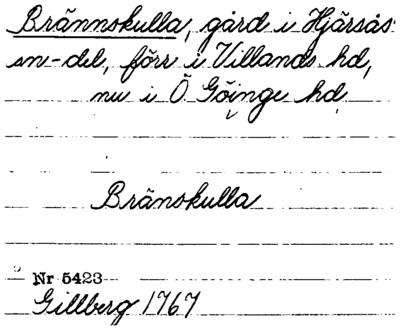 Brännskulla, gård i Hjärsås
sn-del, förr i Villands hd,
nu i Ö Göinge hd
Bränskulla
Nr 5423
Gillberg 1767